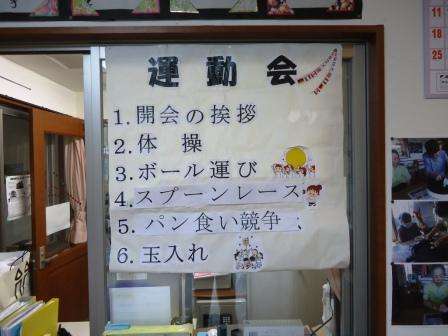 運動会
1.開会の挨拶
2.体 操
3.ボール運び
4.スプーンレース
5.パン食い競争
6.玉入れ
11
18
25